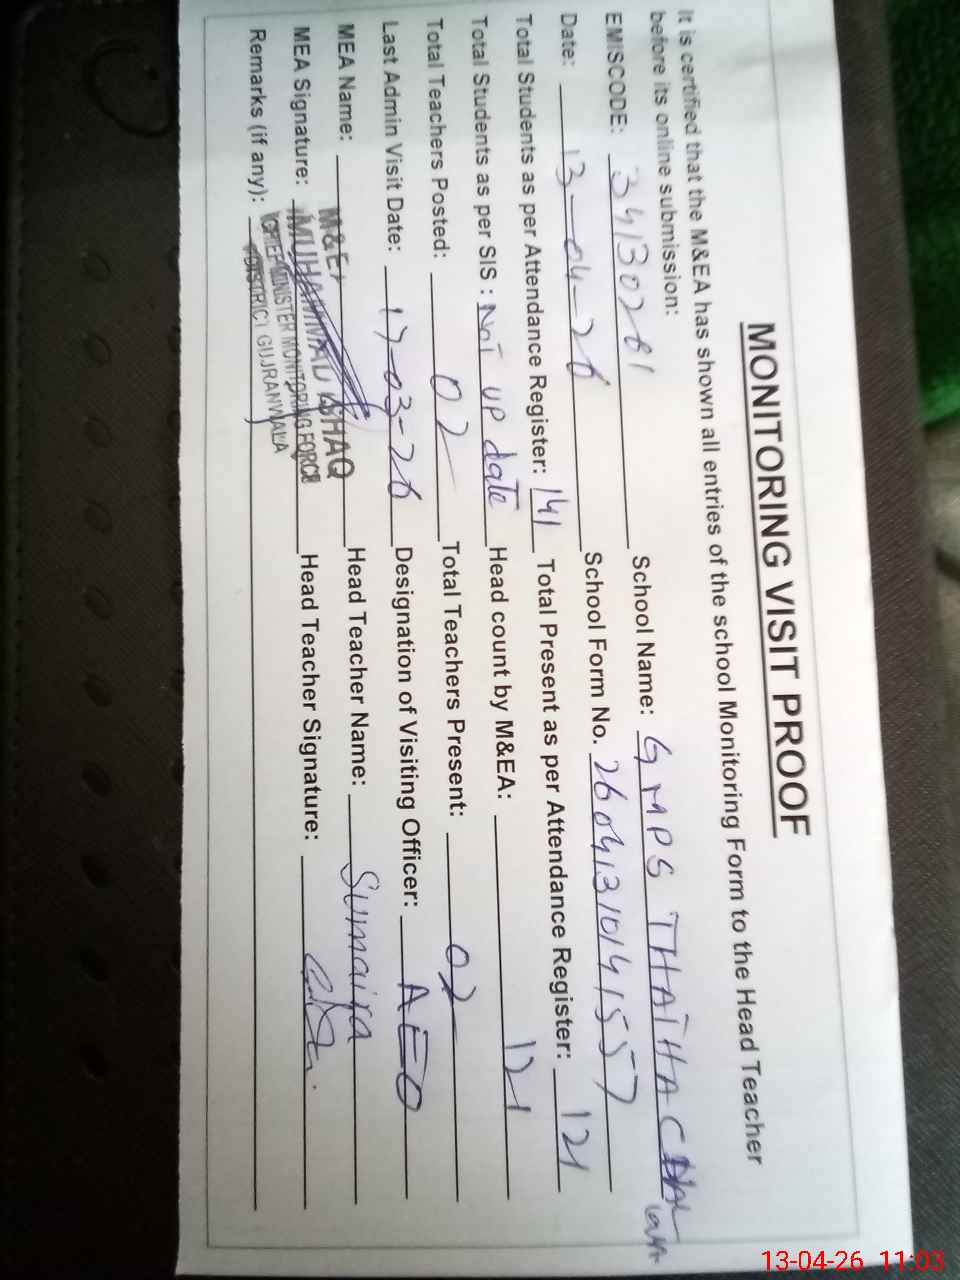 MONITORING VISIT PROOF
It is certified that the M&EA has shown all entries of the school Monitoring Form to the Head Teacher
before its online submission:
EMISCODE: 34130261 School Name: GMPS THATHA
Date: 13-04-26 School Form No. 2604131014157
Total Students as per Attendance Register: 141 Total Present as per Attendance Register: 121
Total Students as per SIS : Not up date Head count by M&EA: 121
Total Teachers Posted: 02 Total Teachers Present: 02
Last Admin Visit Date: 17-03-26 Designation of Visiting Officer: AEO
MEA Name: Head Teacher Name: Sumaira
MEA Signature: Head Teacher Signature:
Remarks (if any):
MUHAMMAD ISHAQ
CHIEF MINISTER MONITORING FORCE
DISTRICT GUJRANWALA
13-04-26 11:03